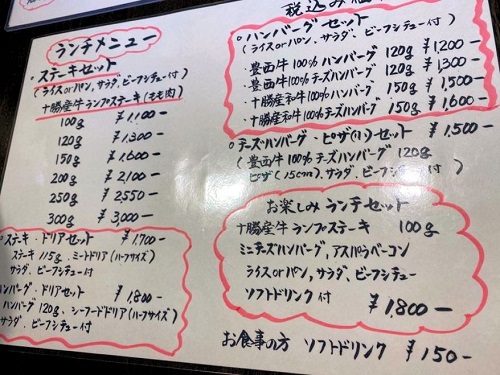 ランチメニュー
・ステーキセット
(ライスorパン、サラダ、ビーフシチュー付)
十勝産牛 ランプステーキ(もも肉)
100g ¥1,100
120g ¥1,300
150g ¥1,600
200g ¥2,100
250g ¥2,550
300g ¥3,000
ステーキ・ドリアセット ¥1,700-
ステーキ 115g、ミートドリア(ハーフサイズ)
サラダ、ビーフシチュー付
ハンバーグ・ドリアセット ¥1,800-
ハンバーグ 120g、シーフードドリア(ハーフサイズ)
サラダ、ビーフシチュー付
税込み
・ハンバーグセット
(ライスorパン、サラダ、ビーフシチュー付)
・豊西牛100%ハンバーグ 120g ¥1,200-
・豊西牛100%チーズハンバーグ 120g ¥1,300-
・十勝産和牛100%ハンバーグ 150g ¥1,500-
・十勝産和牛100%チーズハンバーグ 150g ¥1,600-
・チーズハンバーグ・ピザ(1)セット ¥1,500-
(豊西牛100%チーズハンバーグ 120g
ピザ(15cm)、サラダ、ビーフシチュー付)
お楽しみ ランチセット
十勝産牛 ランプステーキ 100g
ミニチーズハンバーグ、アスパラベーコン
ライスorパン、サラダ、ビーフシチュー
ソフトドリンク付 ¥1,800-
お食事の方 ソフトドリンク ¥150-